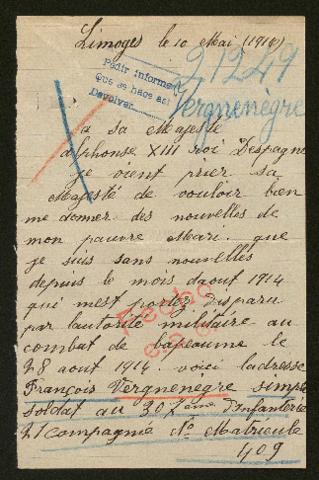 Limoges le 10 Mai (1918)
21249
Pedir informe
Que se hace asi
Devolver
Vergnenègre
a sa Majesté
alphonse XIII roi Despagne
je vient prier sa
Majesté de vouloir bien
me donner des nouvelles de
mon pauvre Mari. que
je suis sans nouvelles
depuis le mois daout 1914
qui mest portez disparu
par lautorité militaire au
combat de bapeaume le
28 aout 1914. voici ladresse
François Vergnenegre simple
soldat au 307eme d'Infanterie
21 compagnie No Matricule
409